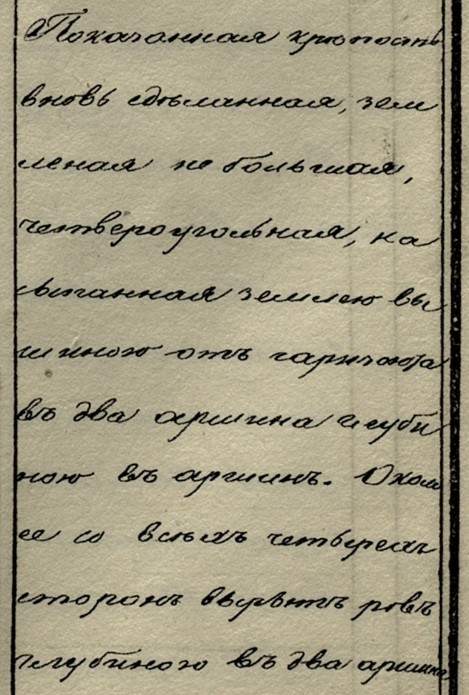 Показанная крѣпость
вновь сдѣланная, зем
леная не большая,
четвероугольная, на
сыпанная землею вы
шиною отъ горизонта
въ два аршина глуби
ною въ аршинъ. Около
ее со всѣхъ четырехъ
сторонъ вырытъ ровъ
глубиною въ два аршина